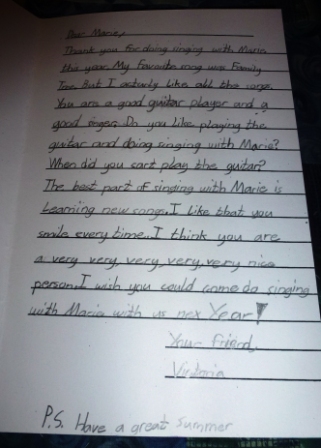 Dear Marie,
Thank you for doing singing with Marie
this year. My favorite song was Family
Tree. But I actuly like all the songs.
You are a good guitar player and a
good singer. Do you like playing the
guitar and doing singing with Marie?
When did you cart play the guitar?
The best part of singing with Marie is
learning new songs. I like that you
smile every time. I think you are
a very very, very, very, very nice
person. I wish you could come do singing
with Marie with us nex Year!
Your friend,
Victoria
P.S. Have a great summer